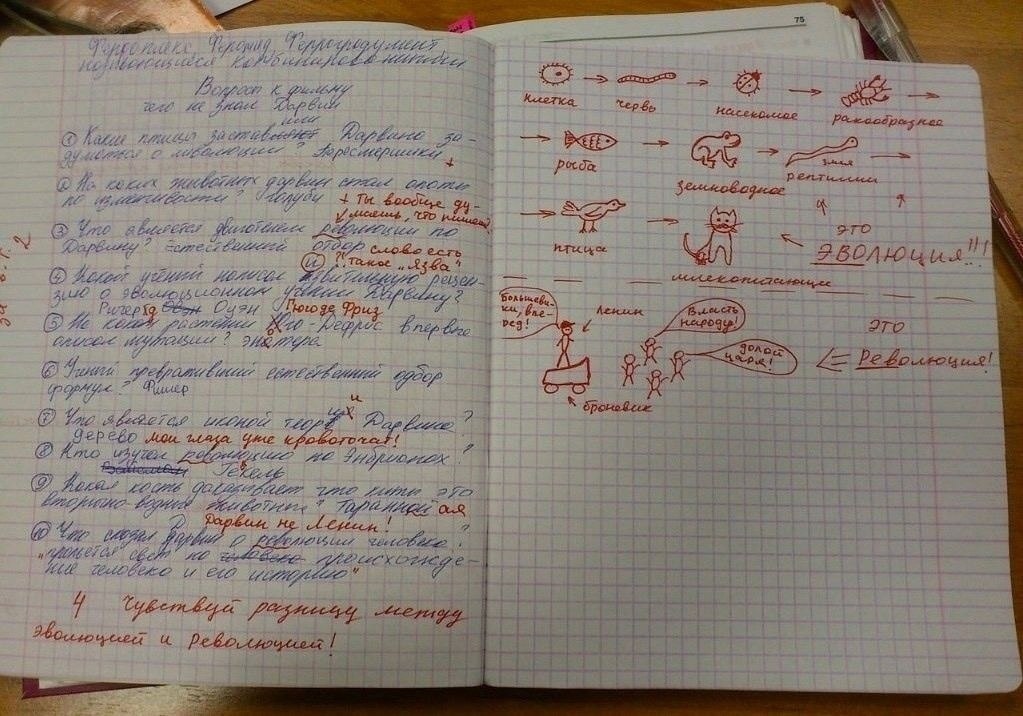 Ферроплекс, Феромид, Феррогродумент
комбинированными
Вопросы к фильму
чего не знал Дарвин
или
① Какие птицы заставили Дарвина за-
думаться о эволюции? Пересмешники +
② На каких животных Дарвин ставил опыты
по изменчивости? Голуби
+ ты вообще ду-
маешь, что пишешь?
③ Что является двигателем революции по
Дарвину? Естественный отбор слово есть
такое „Язва"
④ Какой учёный написал язвительную рецен-
зию о эволюционном учении Дарвину?
Ричард Оуэн Гюго де Фриз
⑤ На каком растении Юго-Дефрис впервые
описал мутации? энотера
⑥ Учёный превративший естественный отбор
формул? Фишер
⑦ Что является иконой теории Дарвина?
дерево мои глаза уже кровоточат!
⑧ Кто изучал революцию по Энбрионах?
Геккель
⑨ Какая кость доказывает что киты это
вторично-водные животные? таранная
Дарвин не Ленин!
⑩ Что сказал Дарвин о революции человека?
„прольётся свет на человека происхожде-
ние человека и его историю"
4 Чувствуй разницу между
эволюцией и революцией!
75
клетка
червь
насекомое
ракообразное
рыба
земноводное
змея
рептилии
птица
млекопитающие
это
ЭВОЛЮЦИЯ!!!
Большеви-
ки, впе-
рёд!
Ленин
Власть
народу!
долой
царя!
броневик
это
Революция!